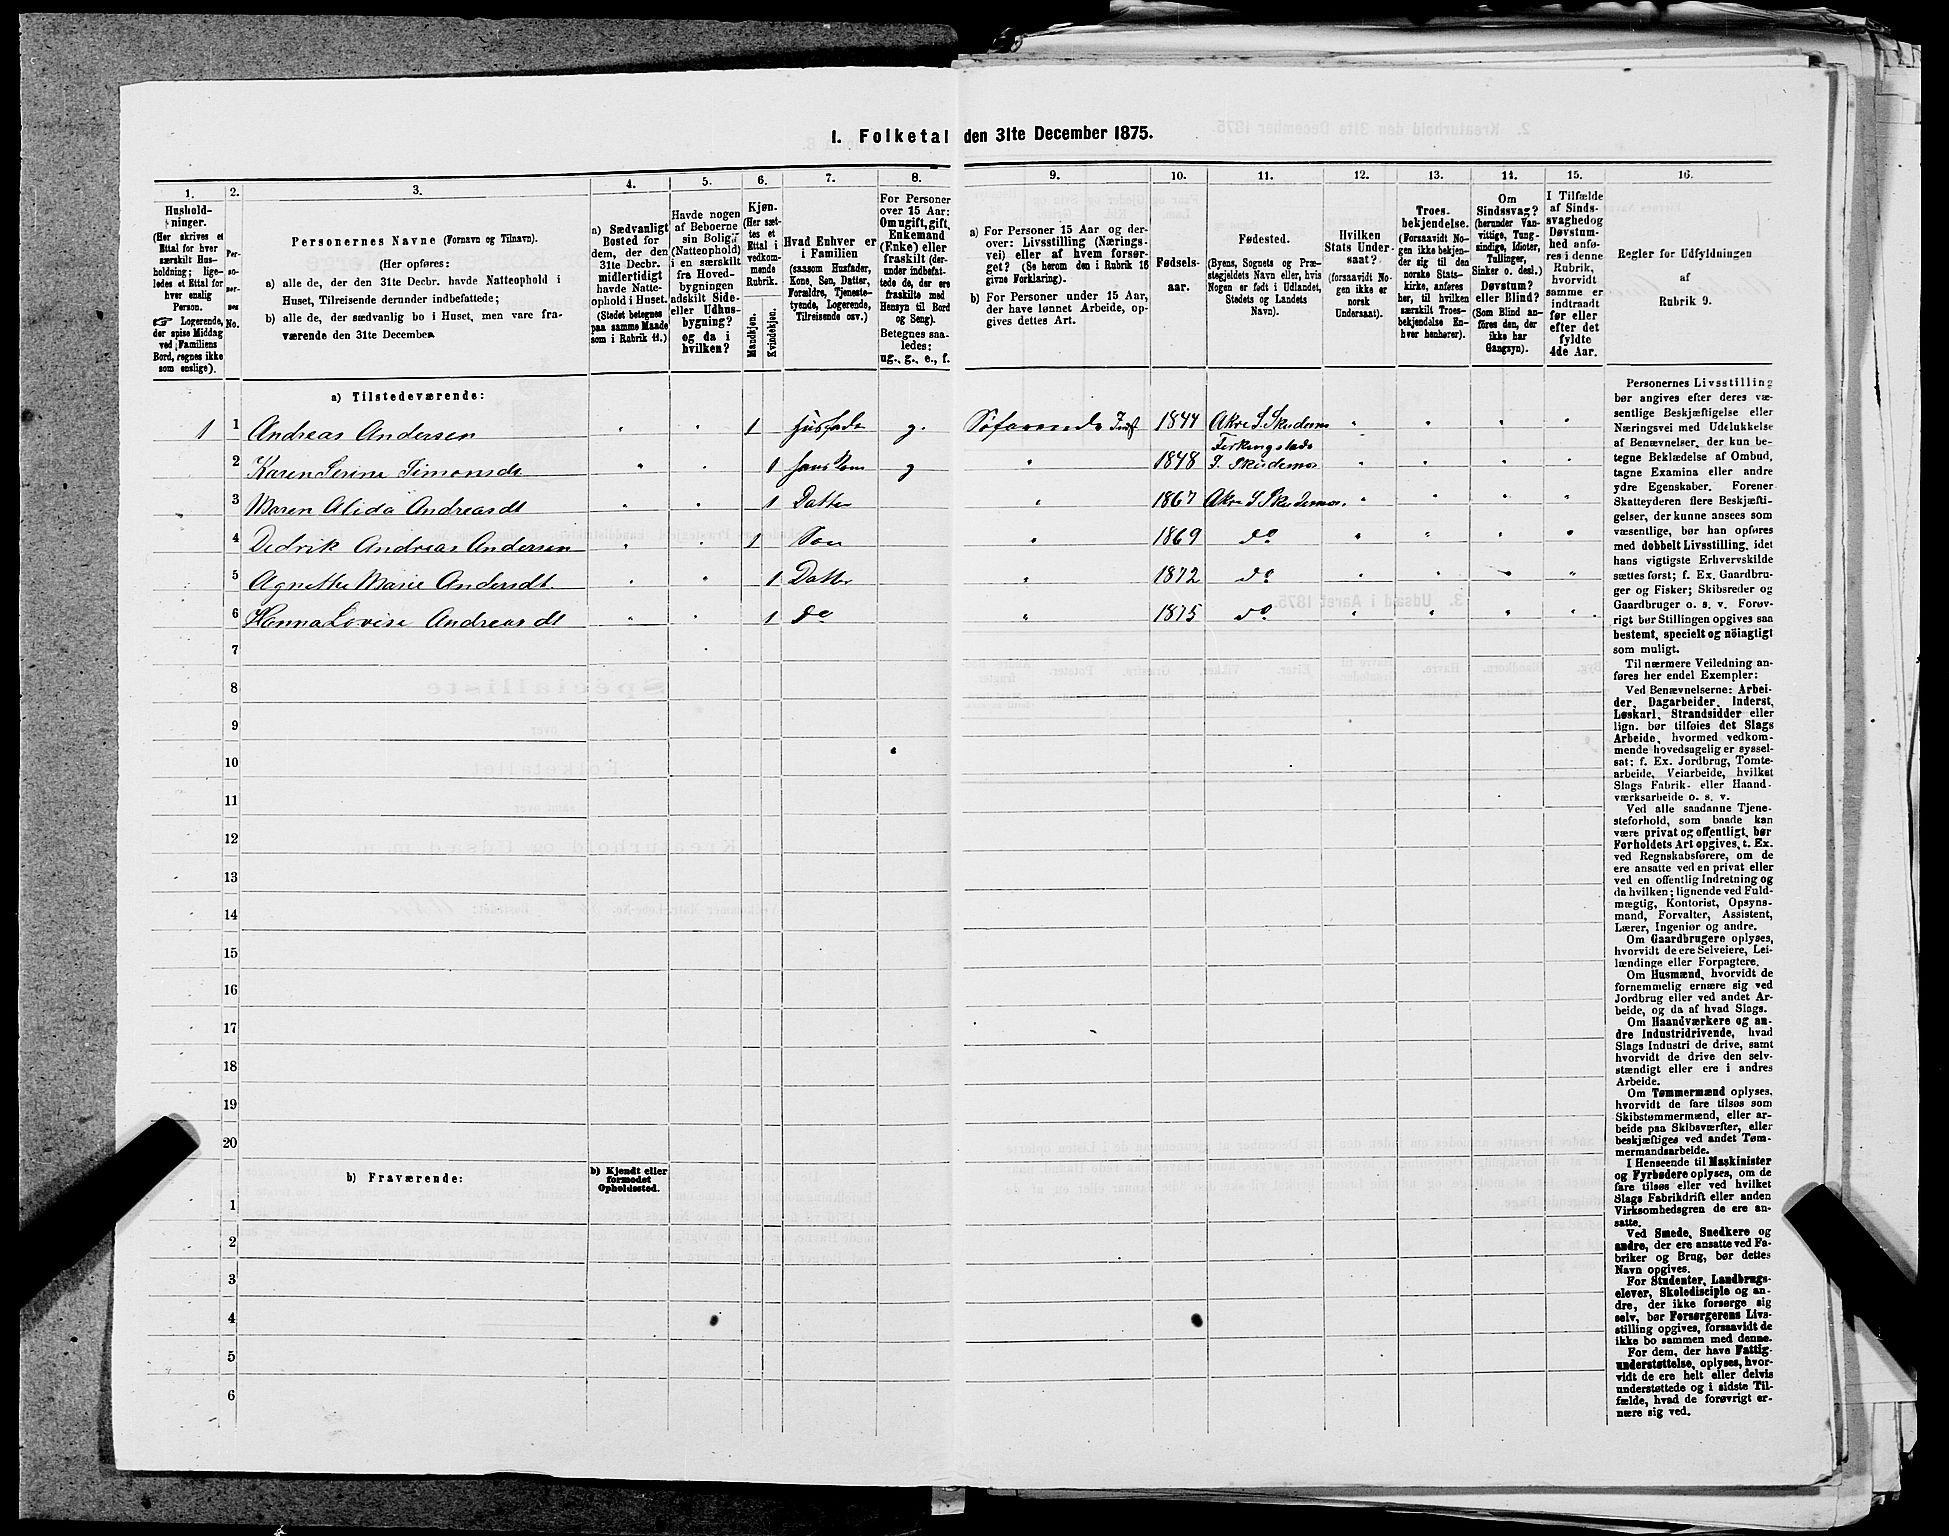 1. Folketal den 31te December 1875.
1. 2. 3. 4. 5. 6. 7. 8. 9. 10. 11. 12. 13. 14. 15. 16.
Hushold-
ninger.
(Her skrives et
Ettal for hver
særskilt Hus-
holdning; lige-
ledes et Ettal for
hver enslig
Person.
☞ Logerende,
der spise Middag
ved Familiens
Bord, regnes ikke
som enslige).
Per-
so-
ner-
nes
No.
Personernes Navne (Fornavn og Tilnavn).
(Her opføres:
a) alle de, der den 31te Decbr. havde Natteophold i
Huset, Tilreisende derunder indbefattede;
b) alle de, der sædvanlig bo i Huset, men vare fra-
værende den 31te December.
a) Sædvanligt
Bosted for
dem, der den
31te Decbr.
midlertidigt
havde Natte-
ophold i Huset.
(Stedet betegnes
paa samme Maade
som i Rubrik 11.)
Havde nogen
af Beboerne
sin Bolig
(Natteophold)
i en særskilt
fra Hoved-
bygningen
adskilt Side-
eller Udhus-
bygning?
og da i
hvilken?
Kjøn.
(Her sæt-
tes et
Ettal i
vedkom-
mende
Rubrik.
Mandkjøn.
Kvindekjøn.
Hvad Enhver er
i Familien
(saasom Husfader,
Kone, Søn, Datter,
Forældre, Tjeneste-
tyende, Logerende,
Tilreisende osv.)
For Personer
over 15 Aar:
Om ugift, gift,
Enkemand
(Enke) eller
fraskilt (der-
under indbefat-
tede de, der ere
fraskilte med
Hensyn til Bord
og Seng).
Betegnes saa-
ledes:
ug., g., e., f.
a) For Personer 15 Aar og der-
over: Livsstilling (Nærings-
vei) eller af hvem forsør-
get? (Se herom den i Rubrik 16
givne Forklaring).
b) For Personer under 15 Aar,
der have lønnet Arbeide, op-
gives dettes Art.
Fødsels-
aar.
Fødested.
(Byens, Sognets og Præ-
stegjeldets Navn eller, hvis
Nogen er født i Udlandet,
Stedets og Landets
Navn).
Hvilken
Stats Under-
saat?
(forsaavidt No-
gen ikke er
norsk
Undersaat).
Troes-
bekjendelse.
(Forsaavidt No-
gen ikke bekjen-
der sig til den
norske Stats-
kirke, anføres
her, til hvilken
særskilt Troes-
bekjendelse En-
hver henhører).
Om
Sindssvag?
(herunder Van-
vittige, Tung-
sindige, Idioter,
Tullinger,
Sinker o. desl.)
Døvstum?
eller Blind?
(Som Blind an-
føres den, der
ikke har
Gangsyn).
I Tilfælde
af Sinds-
svaghed og
Døvstum-
hed anfø-
res i denne
Rubrik,
hvorvidt
samme er
indtraadt
før eller
efter det
fyldte
4de Aar.
Regler for Udfyldningen
af
Rubrik 9.
a) Tilstedeværende:
1 1 Andreas Andersen " " 1 Husfader g. Søfarende 1844 Akre S. Skudenes " " " "
2 Karen Serine Simonsdt " " 1 g " 1848 Ferkingstads S. Skudenes " " " "
3 Maren Alida Andreasdt " " 1 Datter " 1867 Akre S. Skudenes " " " "
4 Dedrik Andreas Andersen " " 1 Søn " 1869 do " " " "
5 Agnethe Marie Andersdt. " " 1 Datter " 1872 do " " " "
6 Hanna Lovise Andreasdt " " 1 do " 1875 do " " " "
7
8
9
10
11
12
13
14
15
16
17
18
19
20
b) Fraværende:
b) Kjendt eller
formodet
Opholdssted.
1
2
3
4
5
6
Personernes Livsstilling
bør angives efter deres væ-
sentlige Beskjæftigelse eller
Næringsvei med Udelukkelse
af Benævnelser, der kun be-
tegne Beklædelse af Ombud,
tagne Examina eller andre
ydre Egenskaber. Forener
Skatteyderen flere Beskjæfti-
gelser, der kunne ansees som
væsentlige, bør han opføres
med dobbelt Livsstilling, idet
hans vigtigste Erhvervskilde
sættes først; f. Ex. Gaardbru-
ger og Fisker; Skibsreder og
Gaardbruger o. s. v. Forøv-
rigt bør Stillingen opgives saa
bestemt, specielt og nöiagtigt
som muligt.
Til nærmere Veiledning an-
føres her endel Exempler:
Ved Benævnelserne: Arbei-
der, Dagarbeider, Inderst,
Løskarl, Strandsidder eller
lign. bør tilføies det Slags
Arbeide, hvormed vedkom-
mende hovedsagelig er syssel-
sat; f. Ex. Jordbrug, Tomte-
arbeide, Veiarbeide, hvilket
Slags Fabrik- eller Haand-
værksarbeide o. s. v.
Ved alle saadanne Tjene-
steforhold, som baade kan
være privat og offentligt, bør
Forholdets Art opgives, t. Ex.
ved Regnskabsførere, om de
ere ansatte ved en privat eller
ved en offentlig Indretning og
da hvilken; lignende ved Fuld-
mægtig, Kontorist, Opsyns-
mand, Forvalter, Assistent,
Lærer, Ingeniør og andre.
Om Gaardbrugere oplyses,
hvorvidt de ere Selveiere, Lei-
lændinge eller Forpagtere.
Om Husmænd, hvorvidt de
fornemmelig ernære sig ved
Jordbrug eller ved andet Ar-
beide, og da af hvad Slags.
Om Haandværkere og an-
dre Industridrivende, hvad
Slags Industri de drive, samt
hvorvidt de drive den selv-
stændigt eller ere i andres
Arbeide.
Om Tømmermænd oplyses,
hvorvidt de fare tilsøs som
Skibstømmermænd, eller ar-
beide paa Skibsværfter, eller
beskjæftiges ved andet Tøm-
mermandsarbeide.
I Henseende til Maskinister
og Fyrbødere oplyses, om de
fare tilsøs eller ved hvilket
Slags Fabrikdrift eller anden
Virksomhedsgren de ere an-
satte.
Ved Smede, Snedkere og
andre, der ere ansatte ved Fa-
briker og Brug, bør dettes
Navn opgives.
For Studenter, Landbrugs-
elever, Skoledisciple og an-
dre, der ikke forsørge sig
selv, bør Forsørgerens Livs-
stilling opgives, forsaavidt de
ikke bo sammen med denne.
For dem, der have Fattig-
understøttelse, oplyses, hvor-
vidt de ere helt eller delvis
understøttede og i sidste Til-
fælde, hvad de forøvrigt er-
nære sig ved.